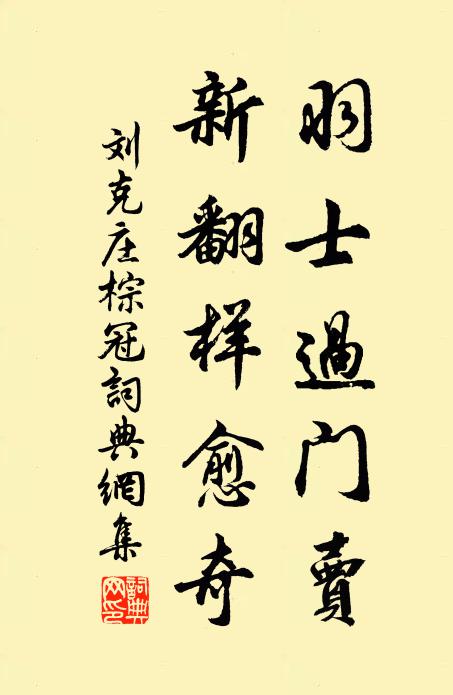 羽士過门賣
新翻样愈奇
刘克庄棕冠詞典網集
詞典网印